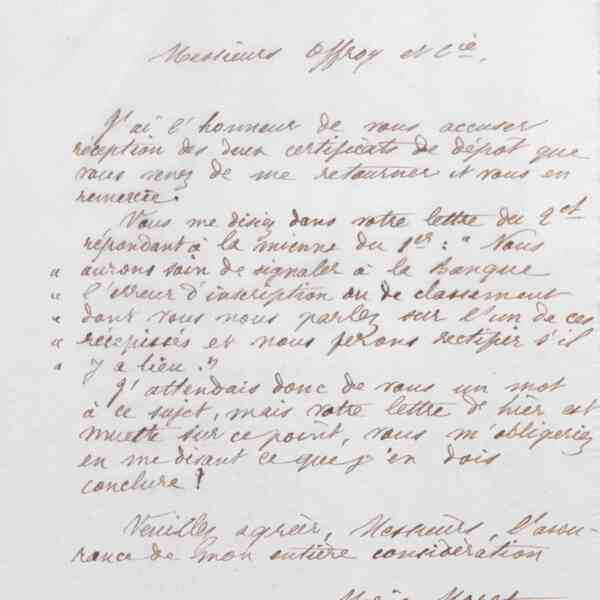 Messieurs Offroy et Cie,
J'ai l'honneur de vous accuser
réception des deux certificats de dépôt que
vous venez de me retourner et vous en
remercie.
Vous me disiez dans votre lettre du 2 oct
répondant à la mienne du 1er : " Nous
" aurons soin de signaler à la Banque
" l'erreur d'inscription ou de classement
" dont vous nous parlez sur l'un de ces
" récépissés et nous ferons rectifier s'il
" y a lieu. "
J'attendais donc de vous un mot
à ce sujet, mais votre lettre d'hier est
muette sur ce point, vous m'obligeriez
en me disant ce que j'en dois
conclure !
Veuillez agréer, Messieurs, l'assu-
rance de mon entière considération